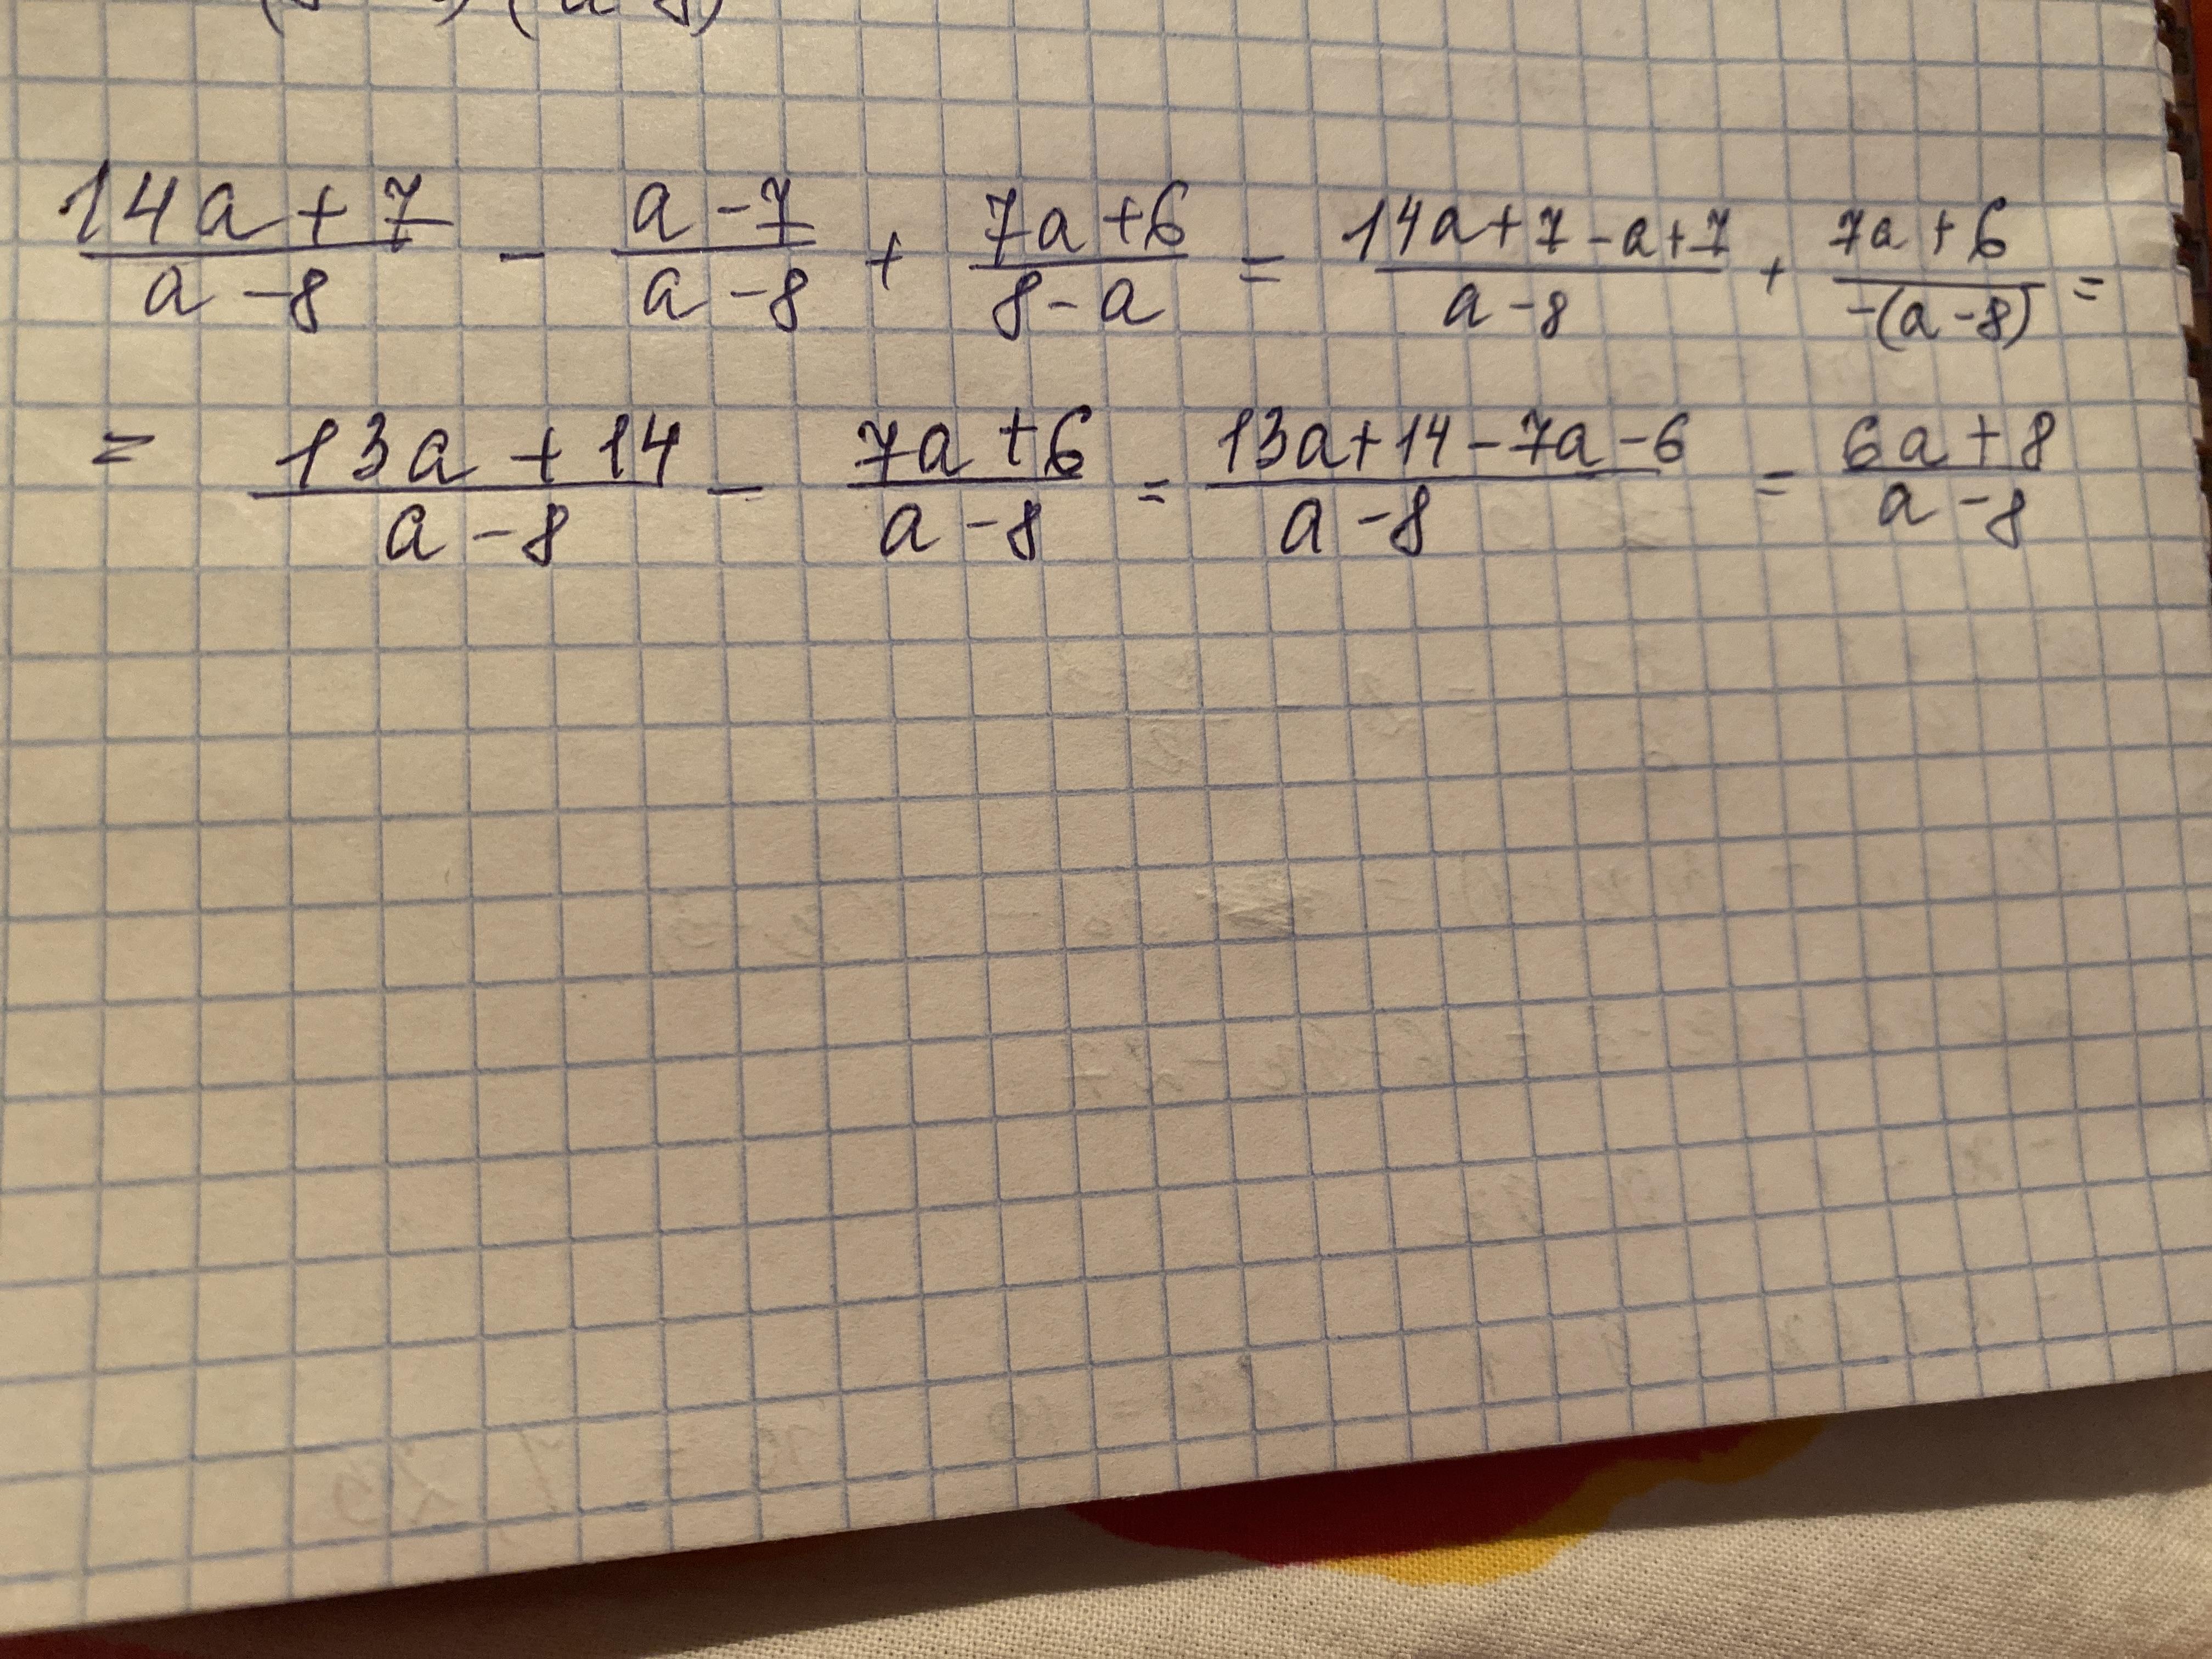 (14a+7)/(a-8) - (a-7)/(a-8) + (7a+6)/(8-a) = (14a+7-a+7)/(a-8) + (7a+6)/(-(a-8)) =
= (13a+14)/(a-8) - (7a+6)/(a-8) = (13a+14-7a-6)/(a-8) = (6a+8)/(a-8)